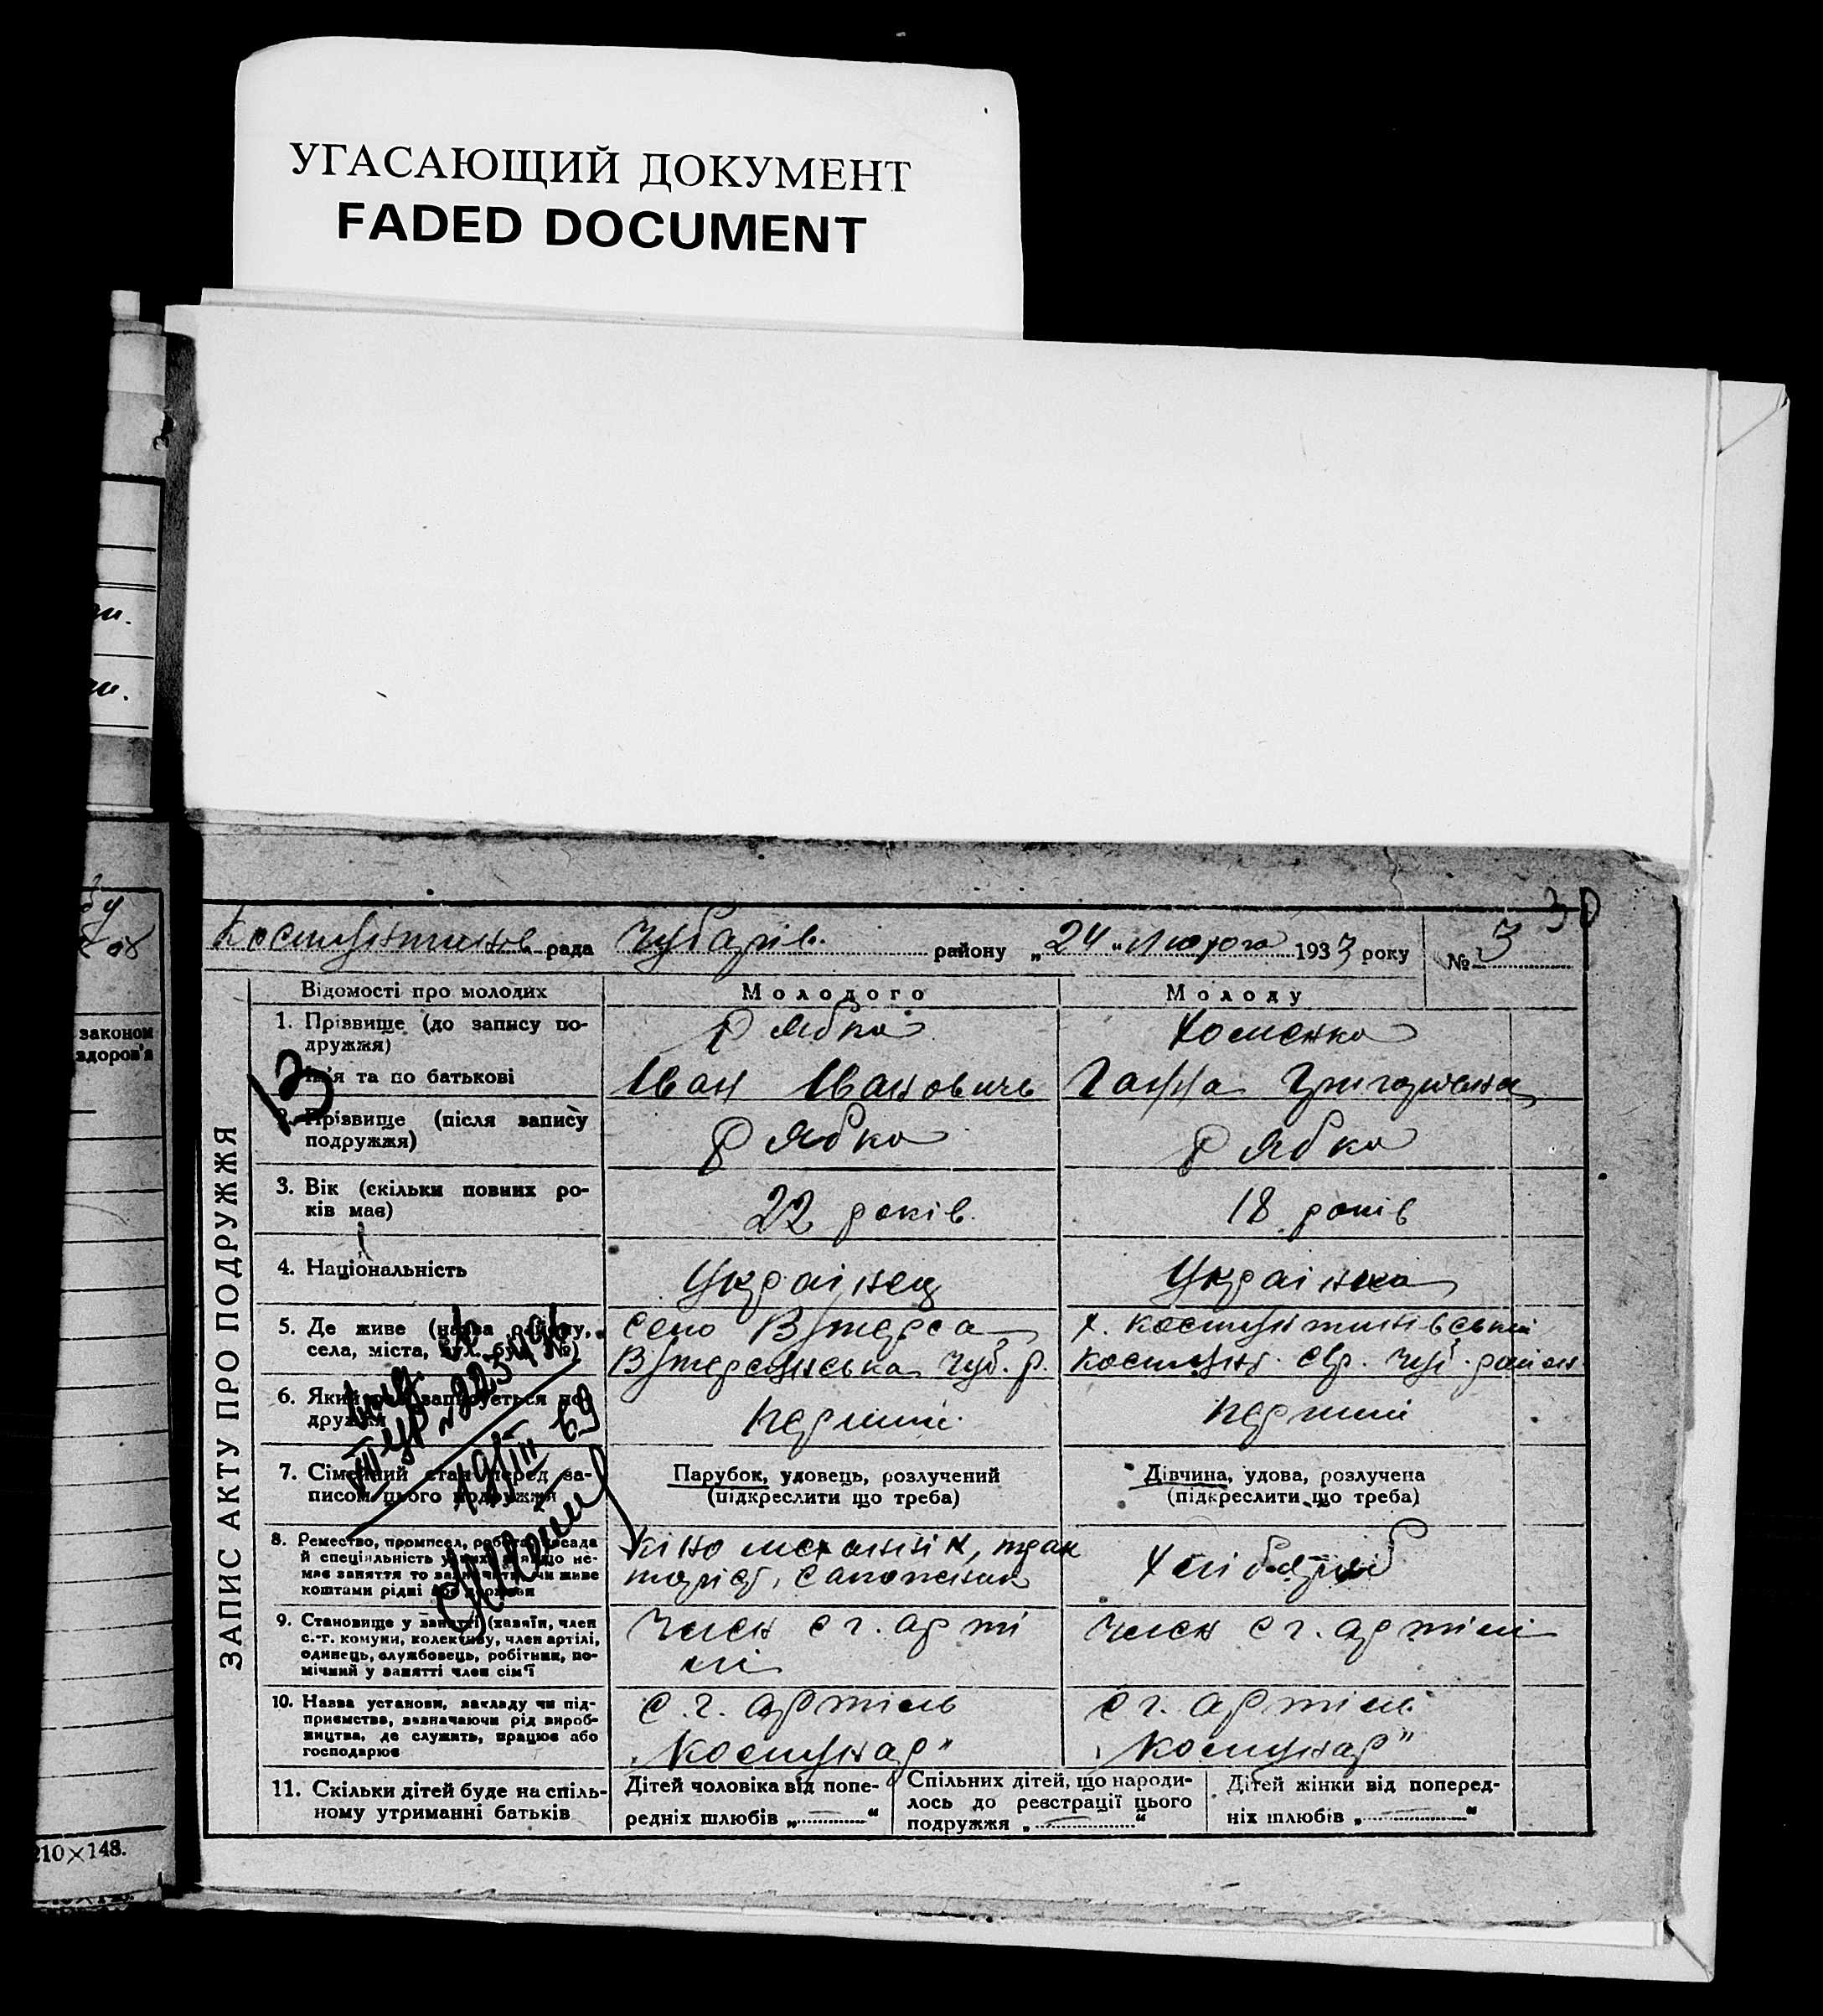 УГАСАЮЩИЙ ДОКУМЕНТ
FADED DOCUMENT
законом
здоров'я
210×148.
30
рада Чубарів. району „24" Лютого 1933 року № 3
ЗАПИС АКТУ ПРО ПОДРУЖЖЯ
Відомості про молодих
Молодого
Молоду
1. Прізвище (до запису по-
дружжя)
Рябко
Хоменко
та по батькові
Іван Іванович
Ганна
13
2. Прізвище (після запису
подружжя)
Рябко
Рябко
3. Вік (скільки повних ро-
ків має)
22 років
18 років
4. Національність
Українец
Українка
5. Де живе (назва району,
села, міста, вул. буд. №)
село
Чуб. р.
х.
Чуб. район
6. Який раз записується по-
дружжя
перший
перший
7. Сімейний стан перед за-
писом цього подружжя
Парубок, удовець, розлучений
(підкреслити що треба)
Дівчина, удова, розлучена
(підкреслити що треба)
8. Ремество, промисел, робота, посада
й спеціяльність у них, якщо не-
має заняття то зазначити, чи живе
коштами рідні або держави
кіно механік, трак
торіст,
Хлібороб
9. Становище у занятті (хазяїн, член
с.-г. комуни, колективу, член артілі,
одинець, службовець, робітник, по-
мічний у занятті член сім'ї
Член с г. арті
лі
Член с г. артілі
10. Назва установи, закладу чи під-
приємства, зазначаючи рід вироб-
ництва, де служить, працює або
господарює
с. г. артіль
„Комунар"
с г. артілі
„Комунар"
11. Скільки дітей буде на спіль-
ному утриманні батьків
Дітей чоловіка від попе-
редніх шлюбів „—“
Спільних дітей, що народи-
лось до реєстрації цього
подружжя „—“
Дітей жінки від поперед-
ніх шлюбів „—“